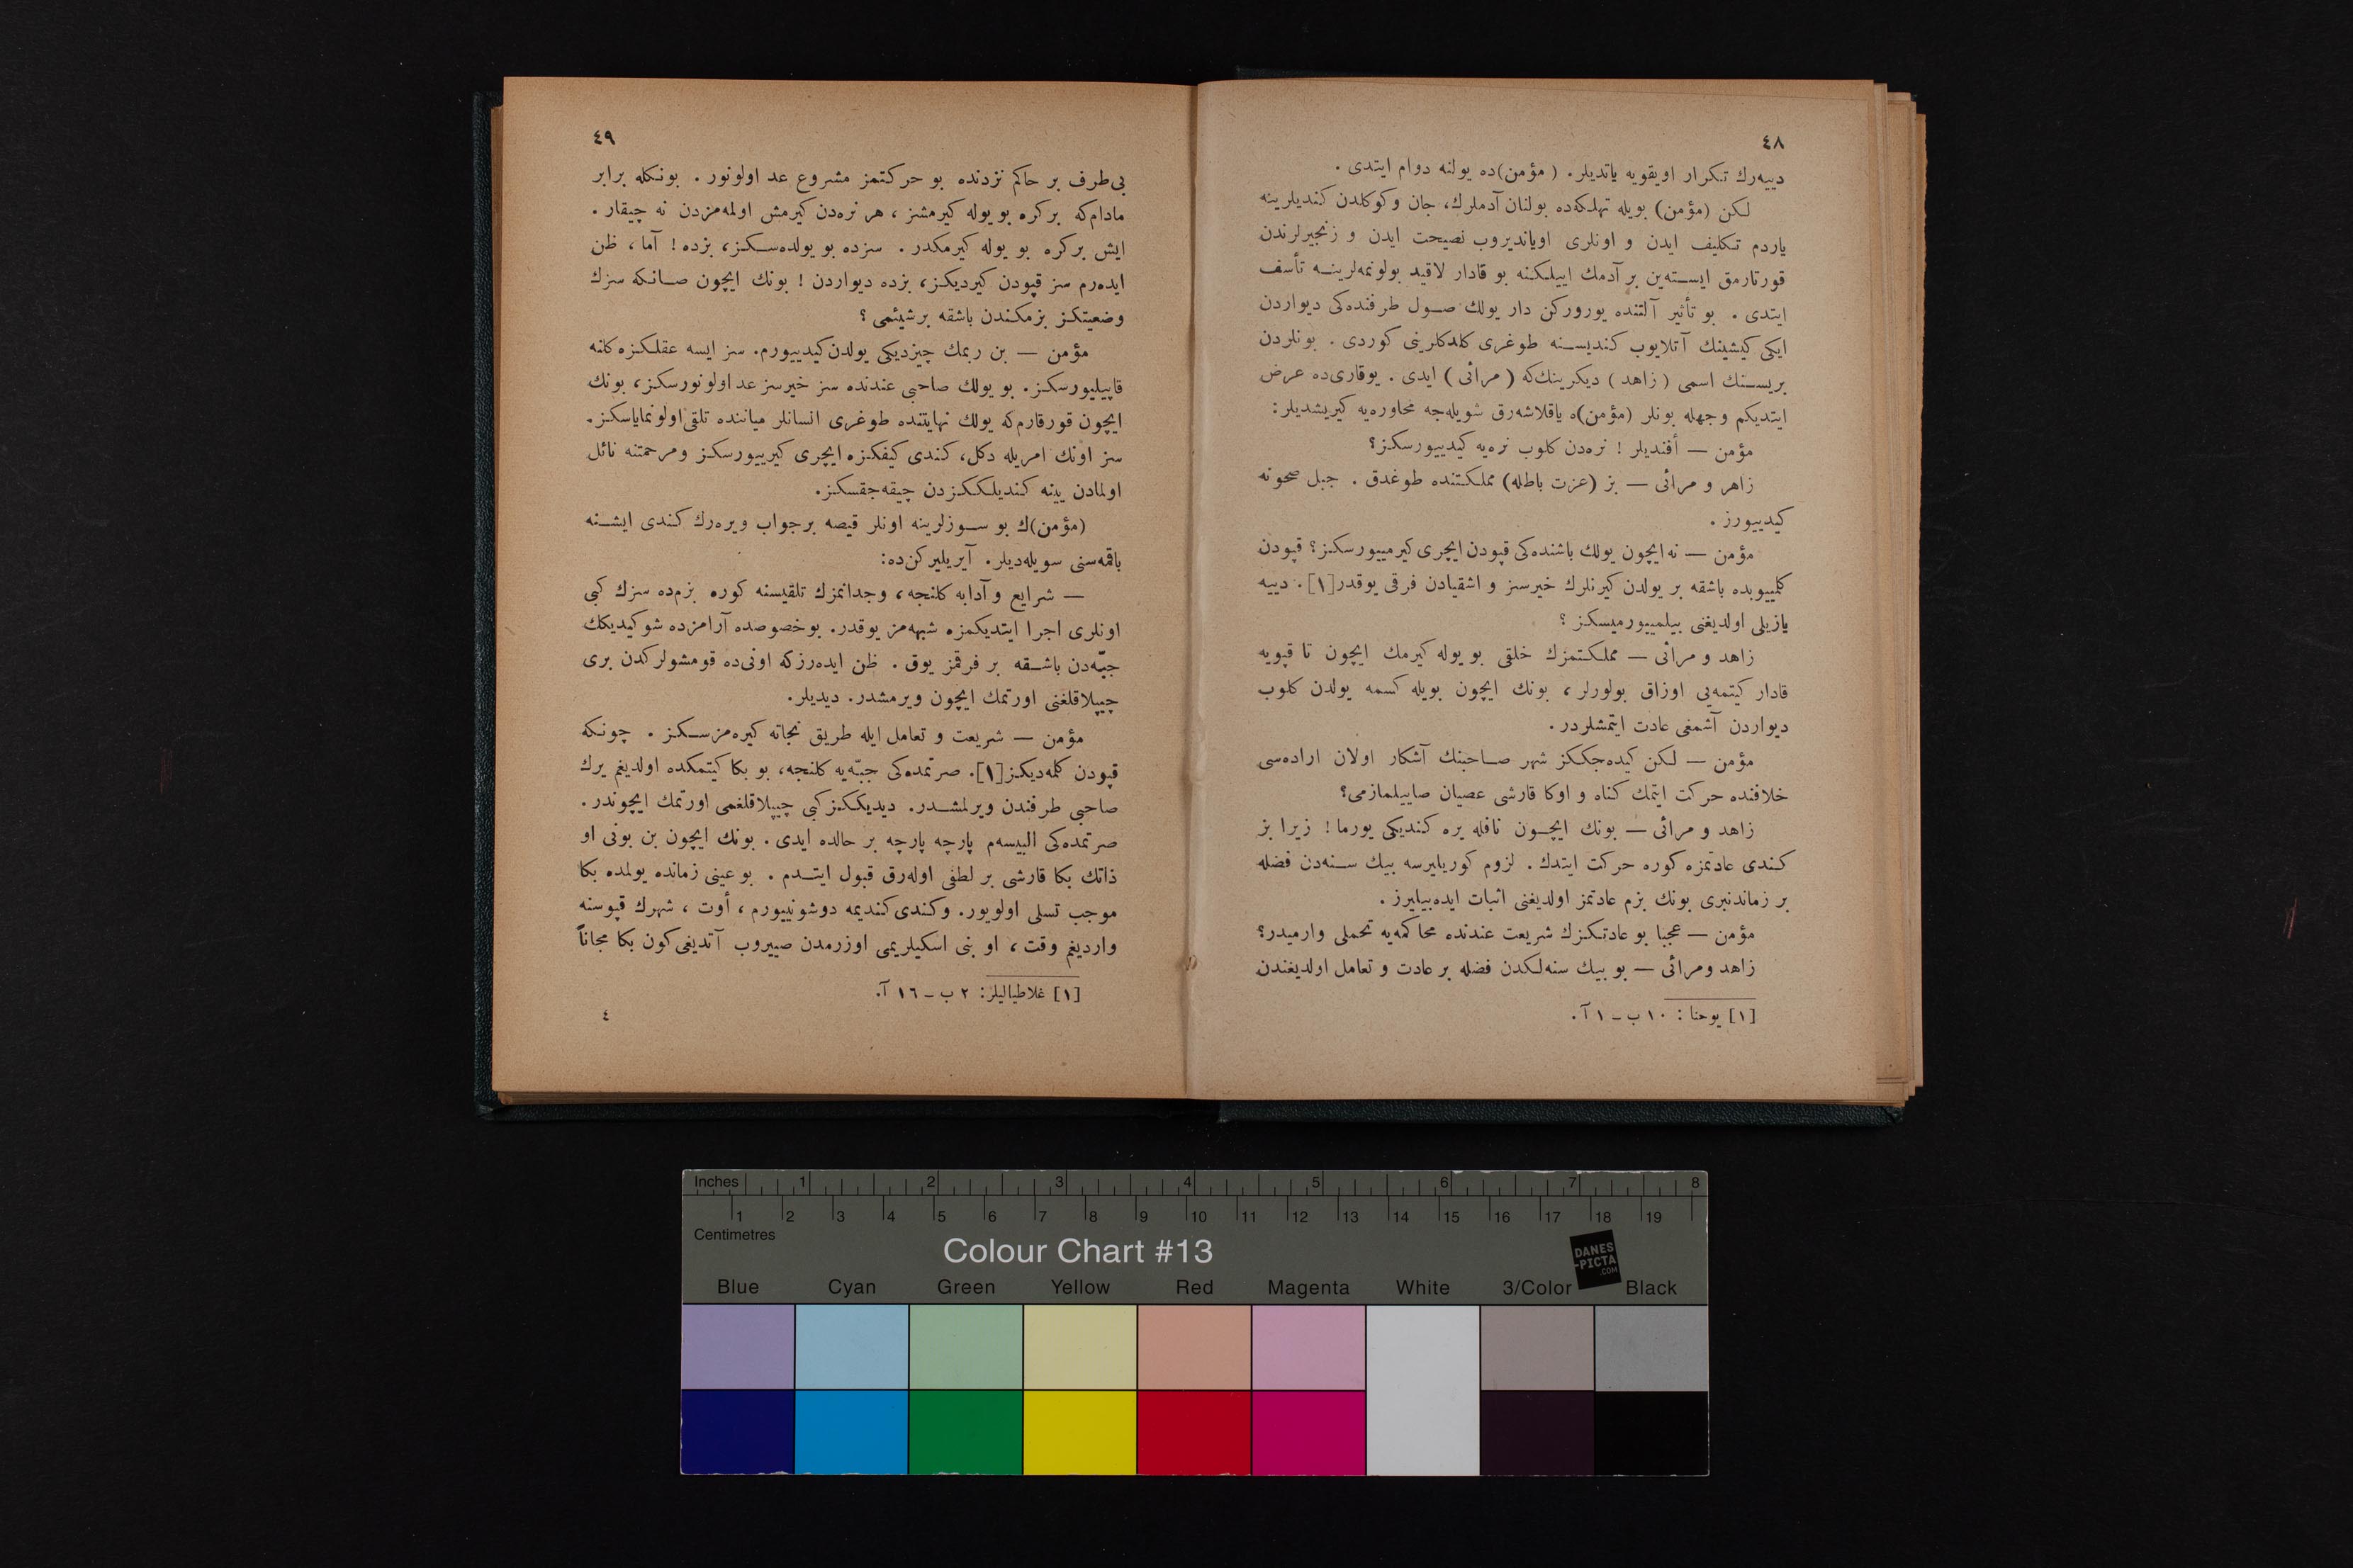 ٤٨
دییه‌رك تكرار اویقویه یاتدیلر. (مؤمن)ده یولنه دوام ایتدی .
لكن (مؤمن) بویله تهلكه‌ده بولنان آدملرك، جان وكوكلدن كندیلرینه
یاردم تكلیف ایدن و اونلری اویاندیروب نصیحت ایدن و زنجیرلرندن
قورتارمق ایسته‌ین بر آدمك اییلكنه بو قادار لاقید بولونمه‌لرینه تأسف
ایتدی . بو تأثیر آلتنده یوروركن دار یولك صول طرفنده‌كی دیواردن
ایكی كیشینك آتلایوب كندیسنه طوغری كلدكلرینی كوردی . بونلردن
بریسنك اسمی (زاهد) دیكرینك‌كه (مرائی) ایدی . یوقاری‌ده عرض
ایتدیكم وجهله بونلر (مؤمن)ه یاقلاشه‌رق شویله‌جه محاوره‌یه كیریشدیلر:
مؤمن — أفندیلر ! نره‌دن كلوب نره‌یه كیدییورسكز؟
زاهر و مرائی — بز (عزت باطله) مملكتنده طوغدق . جبل صحونه
كیدییورز .
مؤمن — نه ایچون یولك باشنده‌كی قپودن ایچری كیرمییورسكز؟ قپودن
كلمییوبده باشقه بر یولدن كیرنلرك خیرسز و اشقیادن فرقی یوقدر[١]. دییه
یازیلی اولدیغنی بیلمییورمیسكز ؟
زاهد و مرائی — مملكتمزك خلقی بو یوله كیرمك ایچون تا قپویه
قادار كیتمه‌یی اوزاق بولورلر ، بونك ایچون بویله كسمه یولدن كلوب
دیواردن آشمغی عادت ایتمشلردر .
مؤمن — لكن كیده‌جككز شهر صاحبنك آشكار اولان اراده‌سی
خلافنده حركت ایتمك كناه و اوكا قارشی عصیان صاییلمازمی؟
زاهد و مرائی — بونك ایچون نافله یره كندیكی یورما ! زیرا بز
كندی عادتمزه كوره حركت ایتدك . لزوم كوریلیرسه بیك سنه‌دن فضله
بر زماندنبری بونك بزم عادتمز اولدیغنی اثبات ایده‌بیلیرز .
مؤمن — عجبا بو عادتكزك شریعت عندنده محاكمه‌یه تحملی وارمیدر؟
زاهد ومرائی — بو بیك سنه‌لكدن فضله بر عادت و تعامل اولدیغندن
[١] یوحنا : ١٠ ب ـ ١ آ .
٤٩
بی‌طرف بر حاكم نزدنده بو حركتمز مشروع عد اولونور . بونكله برابر
مادام‌كه بركره بو یوله كیرمشز ، هر نره‌دن كیرمش اولمه‌مزدن نه چیقار .
ایش بركره بو یوله كیرمكدر . سزده بو یولده‌سكز، بزده ! آما، ظن
ایده‌رم سز قپودن كیردیكز، بزده دیواردن ! بونك ایچون صانكه سزك
وضعیتكز بزمكندن باشقه برشیئمی ؟
مؤمن — بن ربمك چیزدیكی یولدن كیدییورم. سز ایسه عقلكزه كلنه
قاپیلیورسكز. بو یولك صاحبی عندنده سز خیرسز عد اولونورسكز، بونك
ایچون قورقارم‌كه یولك نهایتنده طوغری انسانلر میاننده تلقی اولونمایاسكز.
سز اونك امریله دكل، كندی كیفكزه ایچری كیرییورسكز ومرحمتنه نائل
اولمادن یینه كندیلككزدن چیقه‌جقسكز.
(مؤمن)ك بو سوزلرینه اونلر قیصه برجواب ویره‌رك كندی ایشنه
باقمه‌سنی سویله‌دیلر. آیریلیركن‌ده:
— شرایع و آدابه كلنجه، وجدانمزك تلقیسنه كوره بزم‌ده سزك كبی
اونلری اجرا ایتدیكمزه شبهه‌مز یوقدر. بوخصوصده آرامزده شو كیدیكك
جبّه‌دن باشقه بر فرقمز یوق . ظن ایده‌رزكه اونی‌ده قومشولركدن بری
چیپلاقلغنی اورتمك ایچون ویرمشدر. دیدیلر.
مؤمن — شریعت و تعامل ایله طریق نجاته كیره‌مزسكز . چونكه
قپودن كلمه‌دیكز[١]. صرتمده‌كی جبّه‌یه كلنجه، بو بكا كیتمكده اولدیغم یرك
صاحبی طرفندن ویرلمشدر. دیدیككز كبی چیپلاقلغمی اورتمك ایچوندر.
صرتمده‌كی البیسه‌م پارچه پارچه بر حالده ایدی . بونك ایچون بن بونی او
ذاتك بكا قارشی بر لطفی اوله‌رق قبول ایتدم . بو عینی زمانده یولمده بكا
موجب تسلی اولویور. وكندی كندیمه دوشونییورم ، أوت ، شهرك قپوسنه
واردیغم وقت ، او بنی اسكیلریمی اوزرمدن صییروب آتدیغی كون بكا مجاناً
[١] غلاطیالیلر: ٢ ب ـ ١٦ آ.
٤
Inches 1 2 3 4 5 6 7 8
1 2 3 4 5 6 7 8 9 10 11 12 13 14 15 16 17 18 19
Centimetres
Colour Chart #13
DANES
-PICTA
.COM
Blue Cyan Green Yellow Red Magenta White 3/Color Black